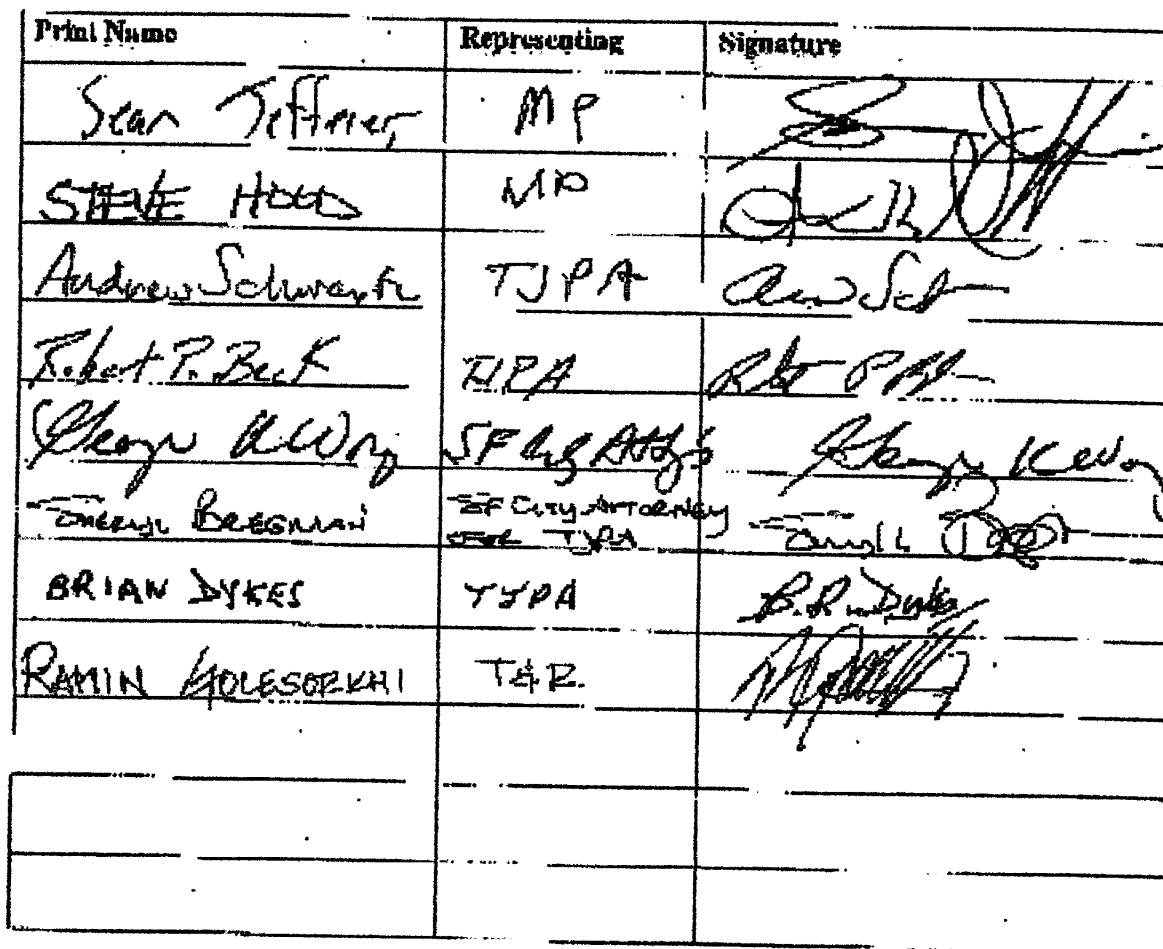 Print Name Representing Signature
Sean Jeffries MP
STEVE HOOD MP
Andrew Schwartz TJPA
Robert P. Beck TJPA Robt P B
George K Wong SF City Atty's George K Wong
Sheryl BREGMAN SF CITY ATTORNEY
FOR TJPA
BRIAN DYKES TJPA B.R. Dykes
RAMIN GOLESORKHI T&R.